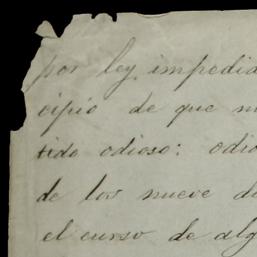 por ley impedid
cipio de que n
tido odioso: odio
de los nueve d
el curso de alg